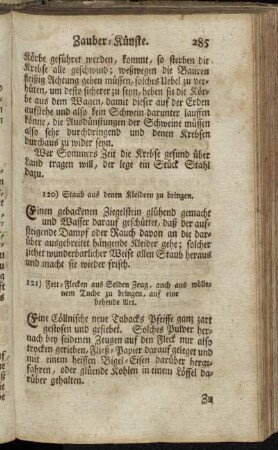 Zauber-Künste. 285
Körbe geführet werden, kommt, so sterben die
Krebse alle geschwind; weßwegen die Bauren
fleißig Achtung geben müssen, solches Uebel zu ver-
hüten, um desto sicherer zu seyn, heben sie die Kör-
be aus dem Wagen, damit dieser auf der Erden
aufstehe und also kein Schwein darunter lauffen
könne, die Ausdünstungen der Schweine müssen
also sehr durchdringend und denen Krebsen
durchaus zu wider seyn.
Wer Sommers Zeit die Krebse gesund über
Land tragen will, der lege ein Stück Stahl
dazu.
120) Staub aus denen Kleidern zu bringen.
Einen gebackenen Ziegelstein glühend gemacht
und Wasser darauf geschüttet, daß der auf-
steigende Dampf oder Rauch davon an die dar-
über ausgebreitet hängende Kleider gehe; solcher
ziehet wunderbarlicher Weise allen Staub heraus
und macht sie wieder frisch.
121) Fett-Flecken aus Seiden Zeug, auch aus wölle-
nem Tuche zu bringen, auf eine
behende Art.
Eine Cöllnische neue Tabacks Pfeiffe ganz zart
gestosen und gesiebet. Solches Pulver her-
nach bey seidenen Zeugen auf den Fleck nur also
trocken gerieben, Fließ-Papier darauf geleget und
mit einem heissen Bigel-Eisen darüber herge-
fahren, oder glüende Kohlen in einem Löffel dar-
über gehalten.
Zu